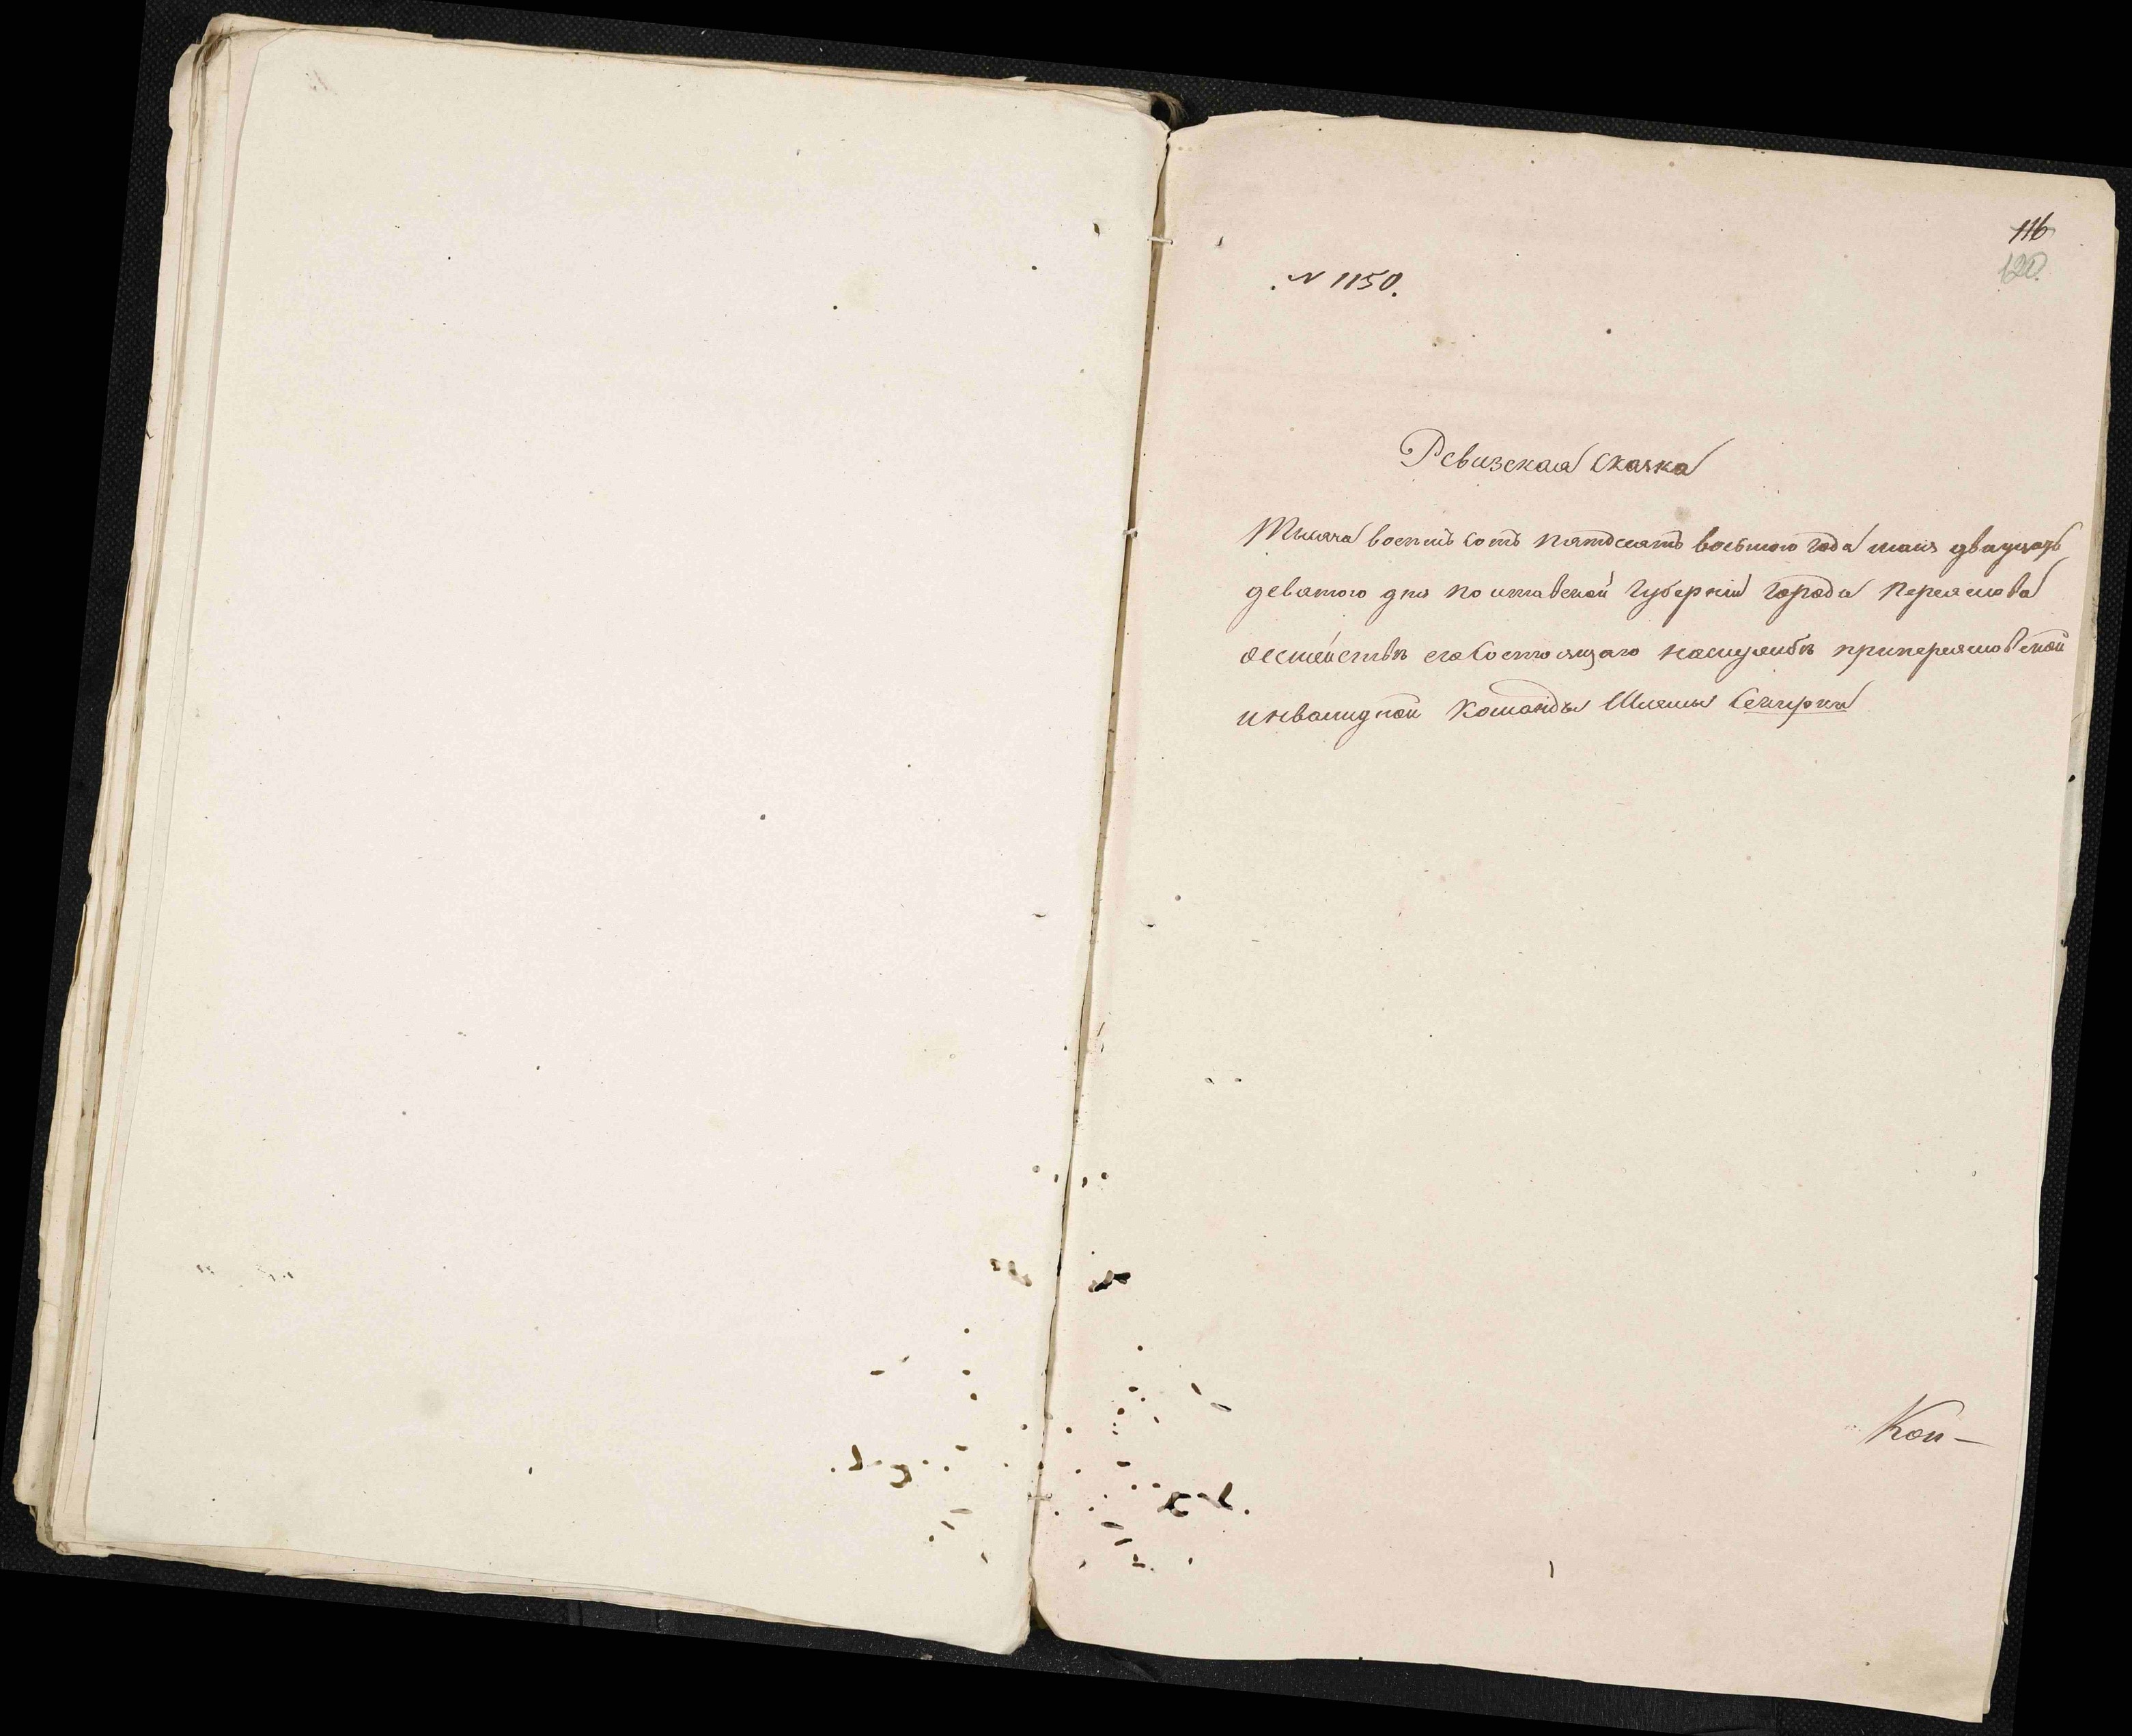 116
120.
N 1150.
Ревизская сказка
Тысяча восемь сотъ пятдесятъ восьмого года мая двадцать
девятого дня полтавской Губерніи города Переяслова
осемействѣ его Состоящаго наслужбѣ припереяславской
инвалидной Команды Шлемы
Кон-